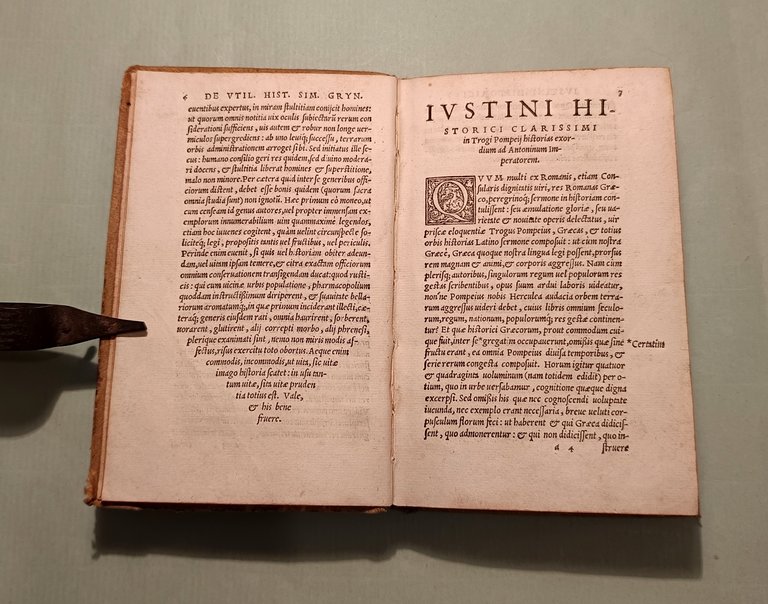 6 DE VTIL. HIST. SIM. GRYN.
euentibus expertus, in miram stultitiam conijcit homines:
ut quorum omnis notitia uix oculis subiectarū rerum con
siderationi sufficiens, uis autem & robur non longe uer-
miculos supergrediens: ab uno leuiq́; successu, terrarum
orbis administrationem arroget sibi. Sed initiatus ille se-
cus: humano consilio geri res quidem, sed diuino modera-
ri docens, & stultitia liberat homines & superstitione,
malo non minore. Per cætera quid inter se generibus offi-
ciorum distent, debet esse bonis quidem (quorum sacra
omnia studia sunt) non ignotū. Hæc primum eò moneo, ut
cum censeam id genus autores, uel propter immensam ex-
emplorum innumerabilium uim quammaxime legendos,
etiam hoc iuuenes cogitent, quàm uelint circunspecte so-
liciteq́; legi, propositis tantis uel fructibus, uel periculis.
Perinde enim euenit, si quis uel historiam obiter adeun-
dam, uel uitam ipsam temere, & citra exactam officiorum
omnium conseruationem transigendam ducat: quod rusti-
cis: qui cum uicinæ urbis populatione, pharmacopolium
quoddam instructissimum diriperent, & suauitate bella-
riorum aromatumq́;, in quæ primum inciderant illecti, cæ-
teraq́; generis eiusdem rati, omnia haurirent, sorberent,
uorarent, glutirent, alij correpti morbo, alij phrenesi,
pleriq́ue exanimati sint, nemo non miris modis af-
fectus, risus exercitu toto obortus. Aeque enim
commodis, incommodis, ut uita, sic uitæ
imago historia scatet: in usu tan-
tum uitæ, sita uitæ pruden
tia totius est. Vale,
& his bene
fruere.
7
IVSTINI HI-
STORICI CLARISSIMI
in Trogi Pompeij historias exor-
dium ad Antoninum Im-
peratorem.
QVVM multi ex Romanis, etiam Con-
sularis dignitatis uiri, res Romanas Græ-
co, peregrinoq́; sermone in historiam con-
tulissent: seu æmulatione gloriæ, seu ua-
rietate & nouitate operis delectatus, uir
priscæ eloquentiæ Trogus Pompeius, Græcas, & totius
orbis historias Latino sermone composuit: ut cum nostra
Græcè, Græca quoque nostra lingua legi possent, prorsus
rem magnam & animi, & corporis aggressus. Nam cum
plerisq́; autoribus, singulorum regum uel populorum res
gestas scribentibus, opus suum ardui laboris uideatur,
nónne Pompeius nobis Herculea audacia orbem terra-
rum aggressus uideri debet, cuius libris omnium seculo-
rum, regum, nationum, populorumq́; res gestæ continen-
tur? Et quæ historici Græcorum, prout commodum cui-
que fuit, inter se *gregatim occupauerunt, omissis quæ sine
fructu erant, ea omnia Pompeius diuisa temporibus, &
serie rerum congesta composuit. Horum igitur quatuor
& quadraginta uoluminum (nam totidem edidit) per o-
tium, quo in urbe uersabamur, cognitione quæque digna
excerpsi. Sed omissis his quæ nec cognoscendi uoluptate
iucunda, nec exemplo erant necessaria, breue ueluti cor-
pusculum florum feci: ut haberent & qui Græca didicis-
sent, quo admonerentur: & qui non didicissent, quo in-
a 4 struere
*Certatim